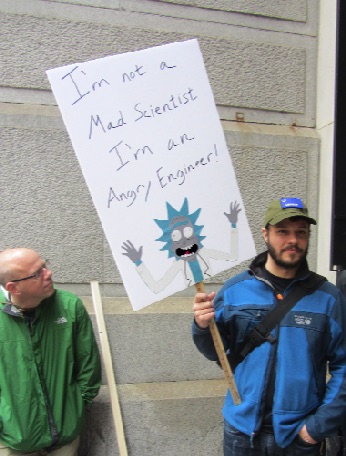 I'm not a
Mad Scientist
I'm an
Angry Engineer!